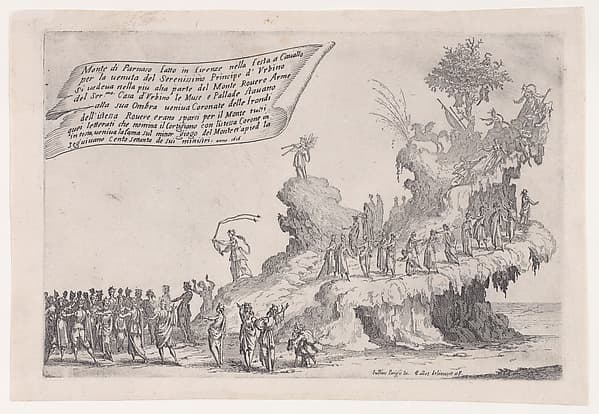 Monte di Parnaso fatto in firenze nella festa a Cauallo
per la uenuta del Serenissimo Principe d' Vrbino
Si uedeua nella piu alta parte del Monte Rouero Arme
del Ser.mo Casa d'Vrbino le Muse e Pallade stauano
alla sua Ombra ueniua Coronate delle frondi
dell'istessa Rouere erano sparsi per il Monte tutti
quei letterati che nomina il Cortigiano con listessa Corone in
in testa, ueniua la fama sul minor giogo del Monte et apied la
seguiuano Cento settanta de sui ministri.
Iulius Parigii in. Callot delineauit et F.